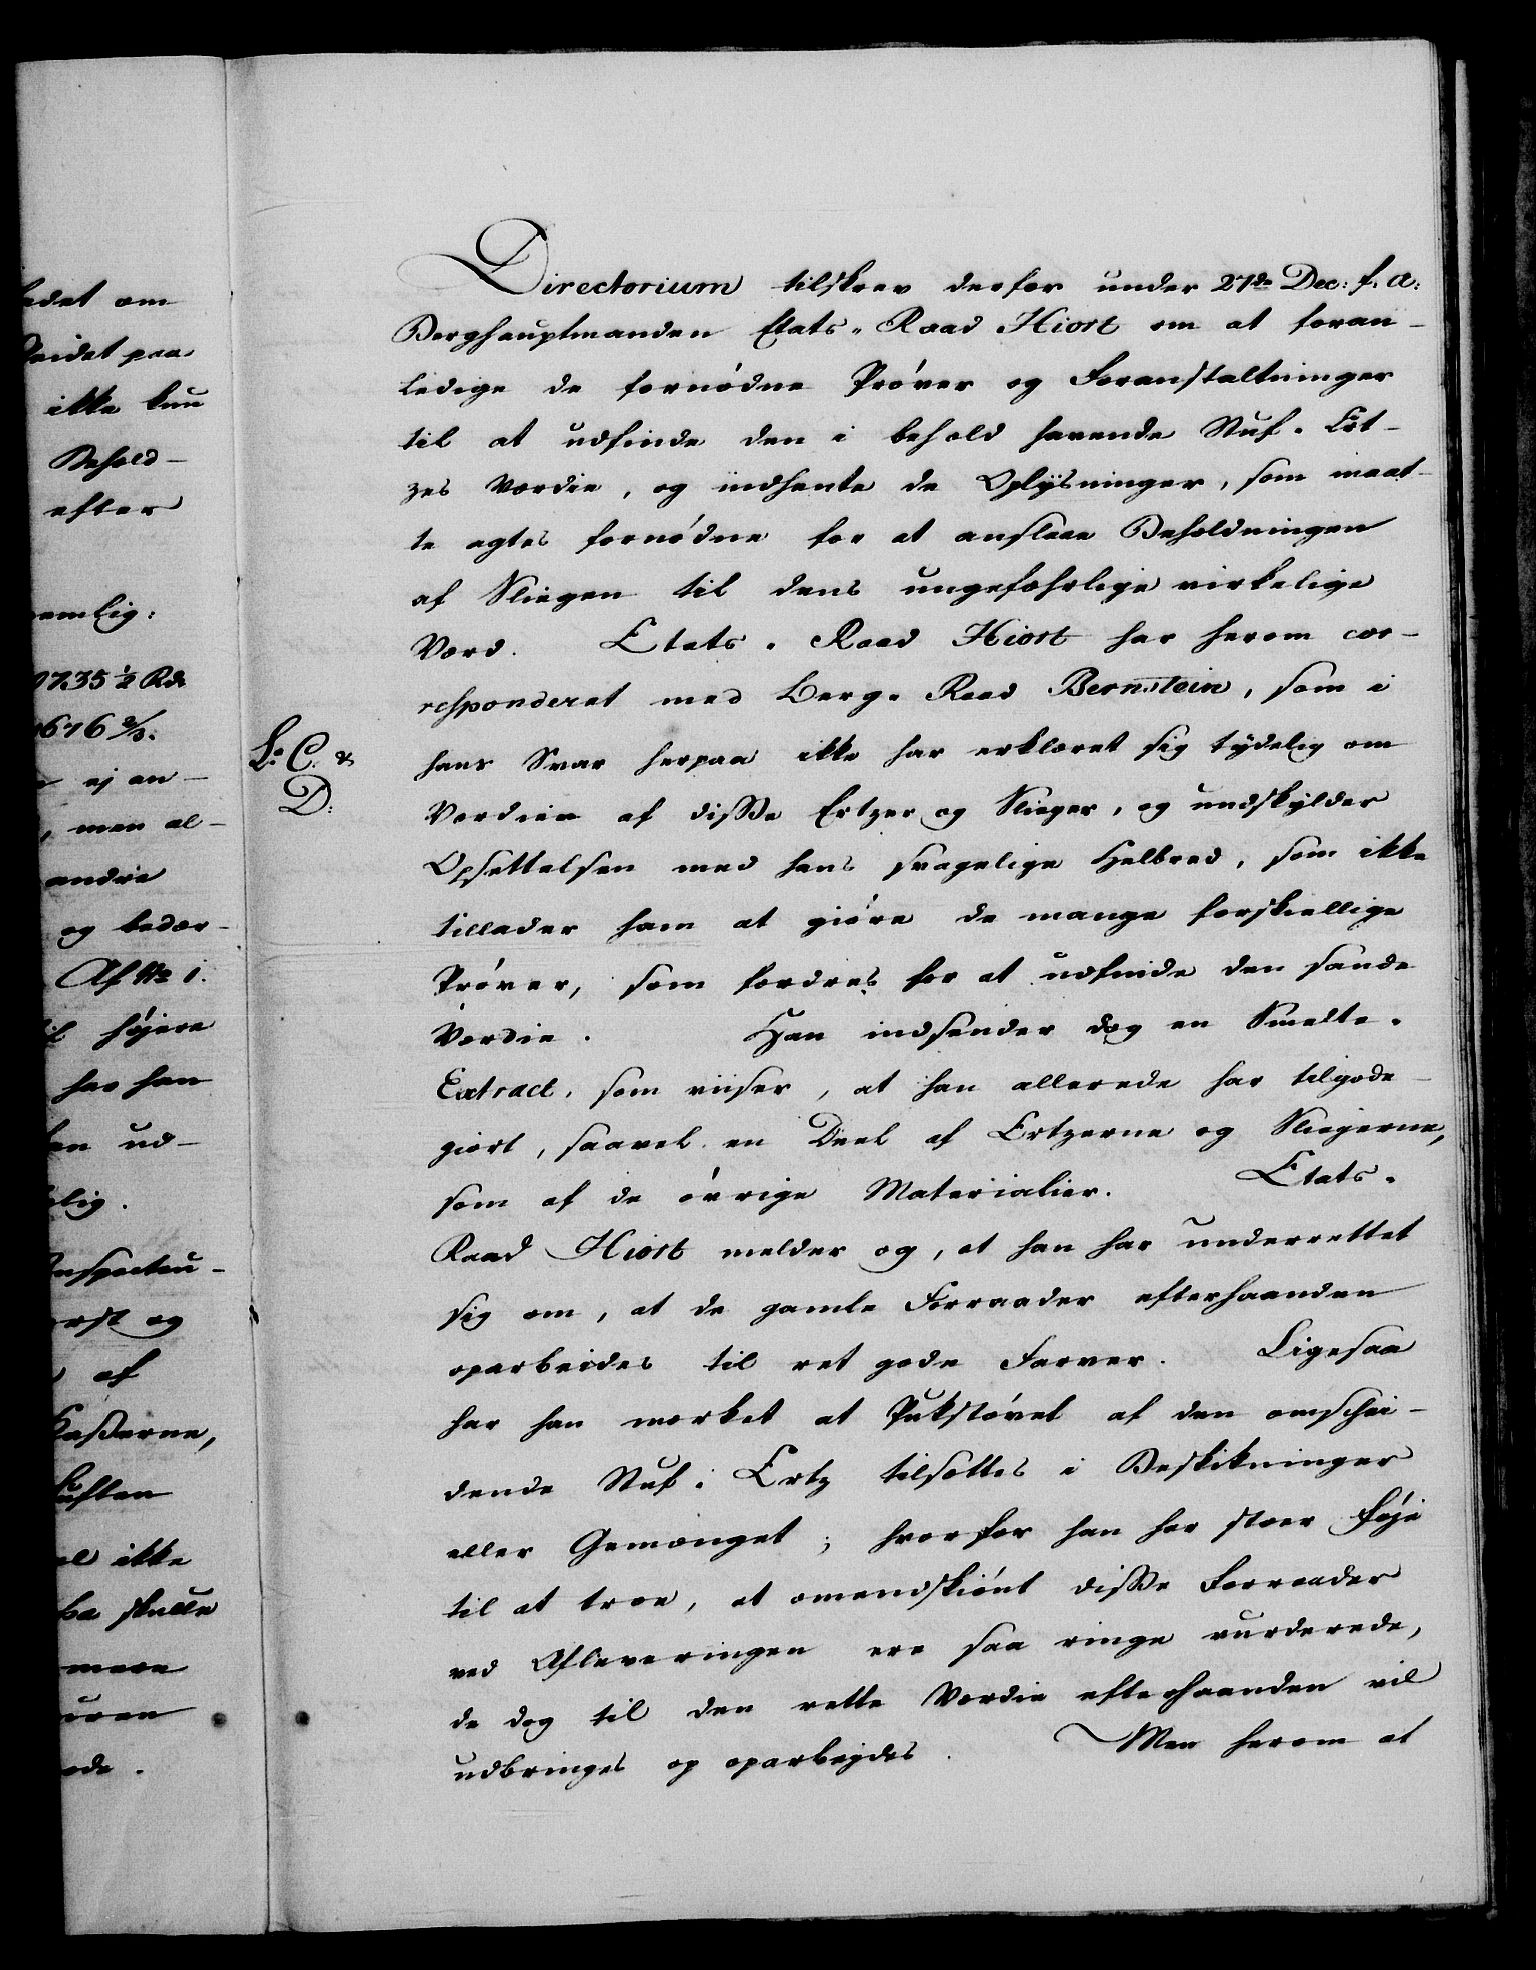 ledet om
beidet paa
ikke kun
Behold-
efter
nemlig:
9735 1/2 Rdr
9676 2/3.
ej an-
, men al-
andre
og bedær-
Af No 1.
til højere
har han
ken ud-
delig.
Inspecteu-
ørst og
af
Casserne,
Luften
vel ikke
ba skulle
mere
uren
ode.
Directorium tilskrev derfor under 27de Dec: f. a:
Berghauptmanden Etats-Raad Hiort om at foran-
ledige de fornødne Prøver og Foranstaltninger
til at udfinde den i behold havende Stuf-Ert-
zes Værdie, og indhente de Oplysninger, som maat-
te agtes fornødne for at anslaae Beholdningen
af Sliegen til dens ungefæhrlige virkelige
Værd. Etats-Raad Hiort har herom cor-
responderet med Berg-Raad Bernstein, som i
L: C. &
D:
hans Svar herpaa ikke har erklæret sig tydelig om
Værdien af disse Ertzer og Slieger, og undskylder
Opsettelsen med hans svagelige Helbred, som ikke
tillader ham at giøre de mange forskiellige
Prøver, som fordres for at udfinde den sande
Værdie. Han indsender dog en Smelte-
Extract, som viiser, at han allerede har tilgode-
giort, saavel en Deel af Ertzerne og Sliegerne,
som af de øvrige Materialier. Etats-
Raad Hiort melder og, at han har underrettet
sig om, at de gamle Forraader efterhaanden
oparbeides til ret gode Farver. Ligesaa
har han mærket at Pukstøvet af den omschei-
dende Stuf-Ertz tilsættes i Beskikninger
eller Gemænget; hvorfor han har stoer Føje
til at troe, at omendskiønt disse Forraader
ved Afleveringen ere saa ringe vurderede,
de dog til den rette Værdie efterhaanden vil
udbringes og oparbejdes. Men herom at